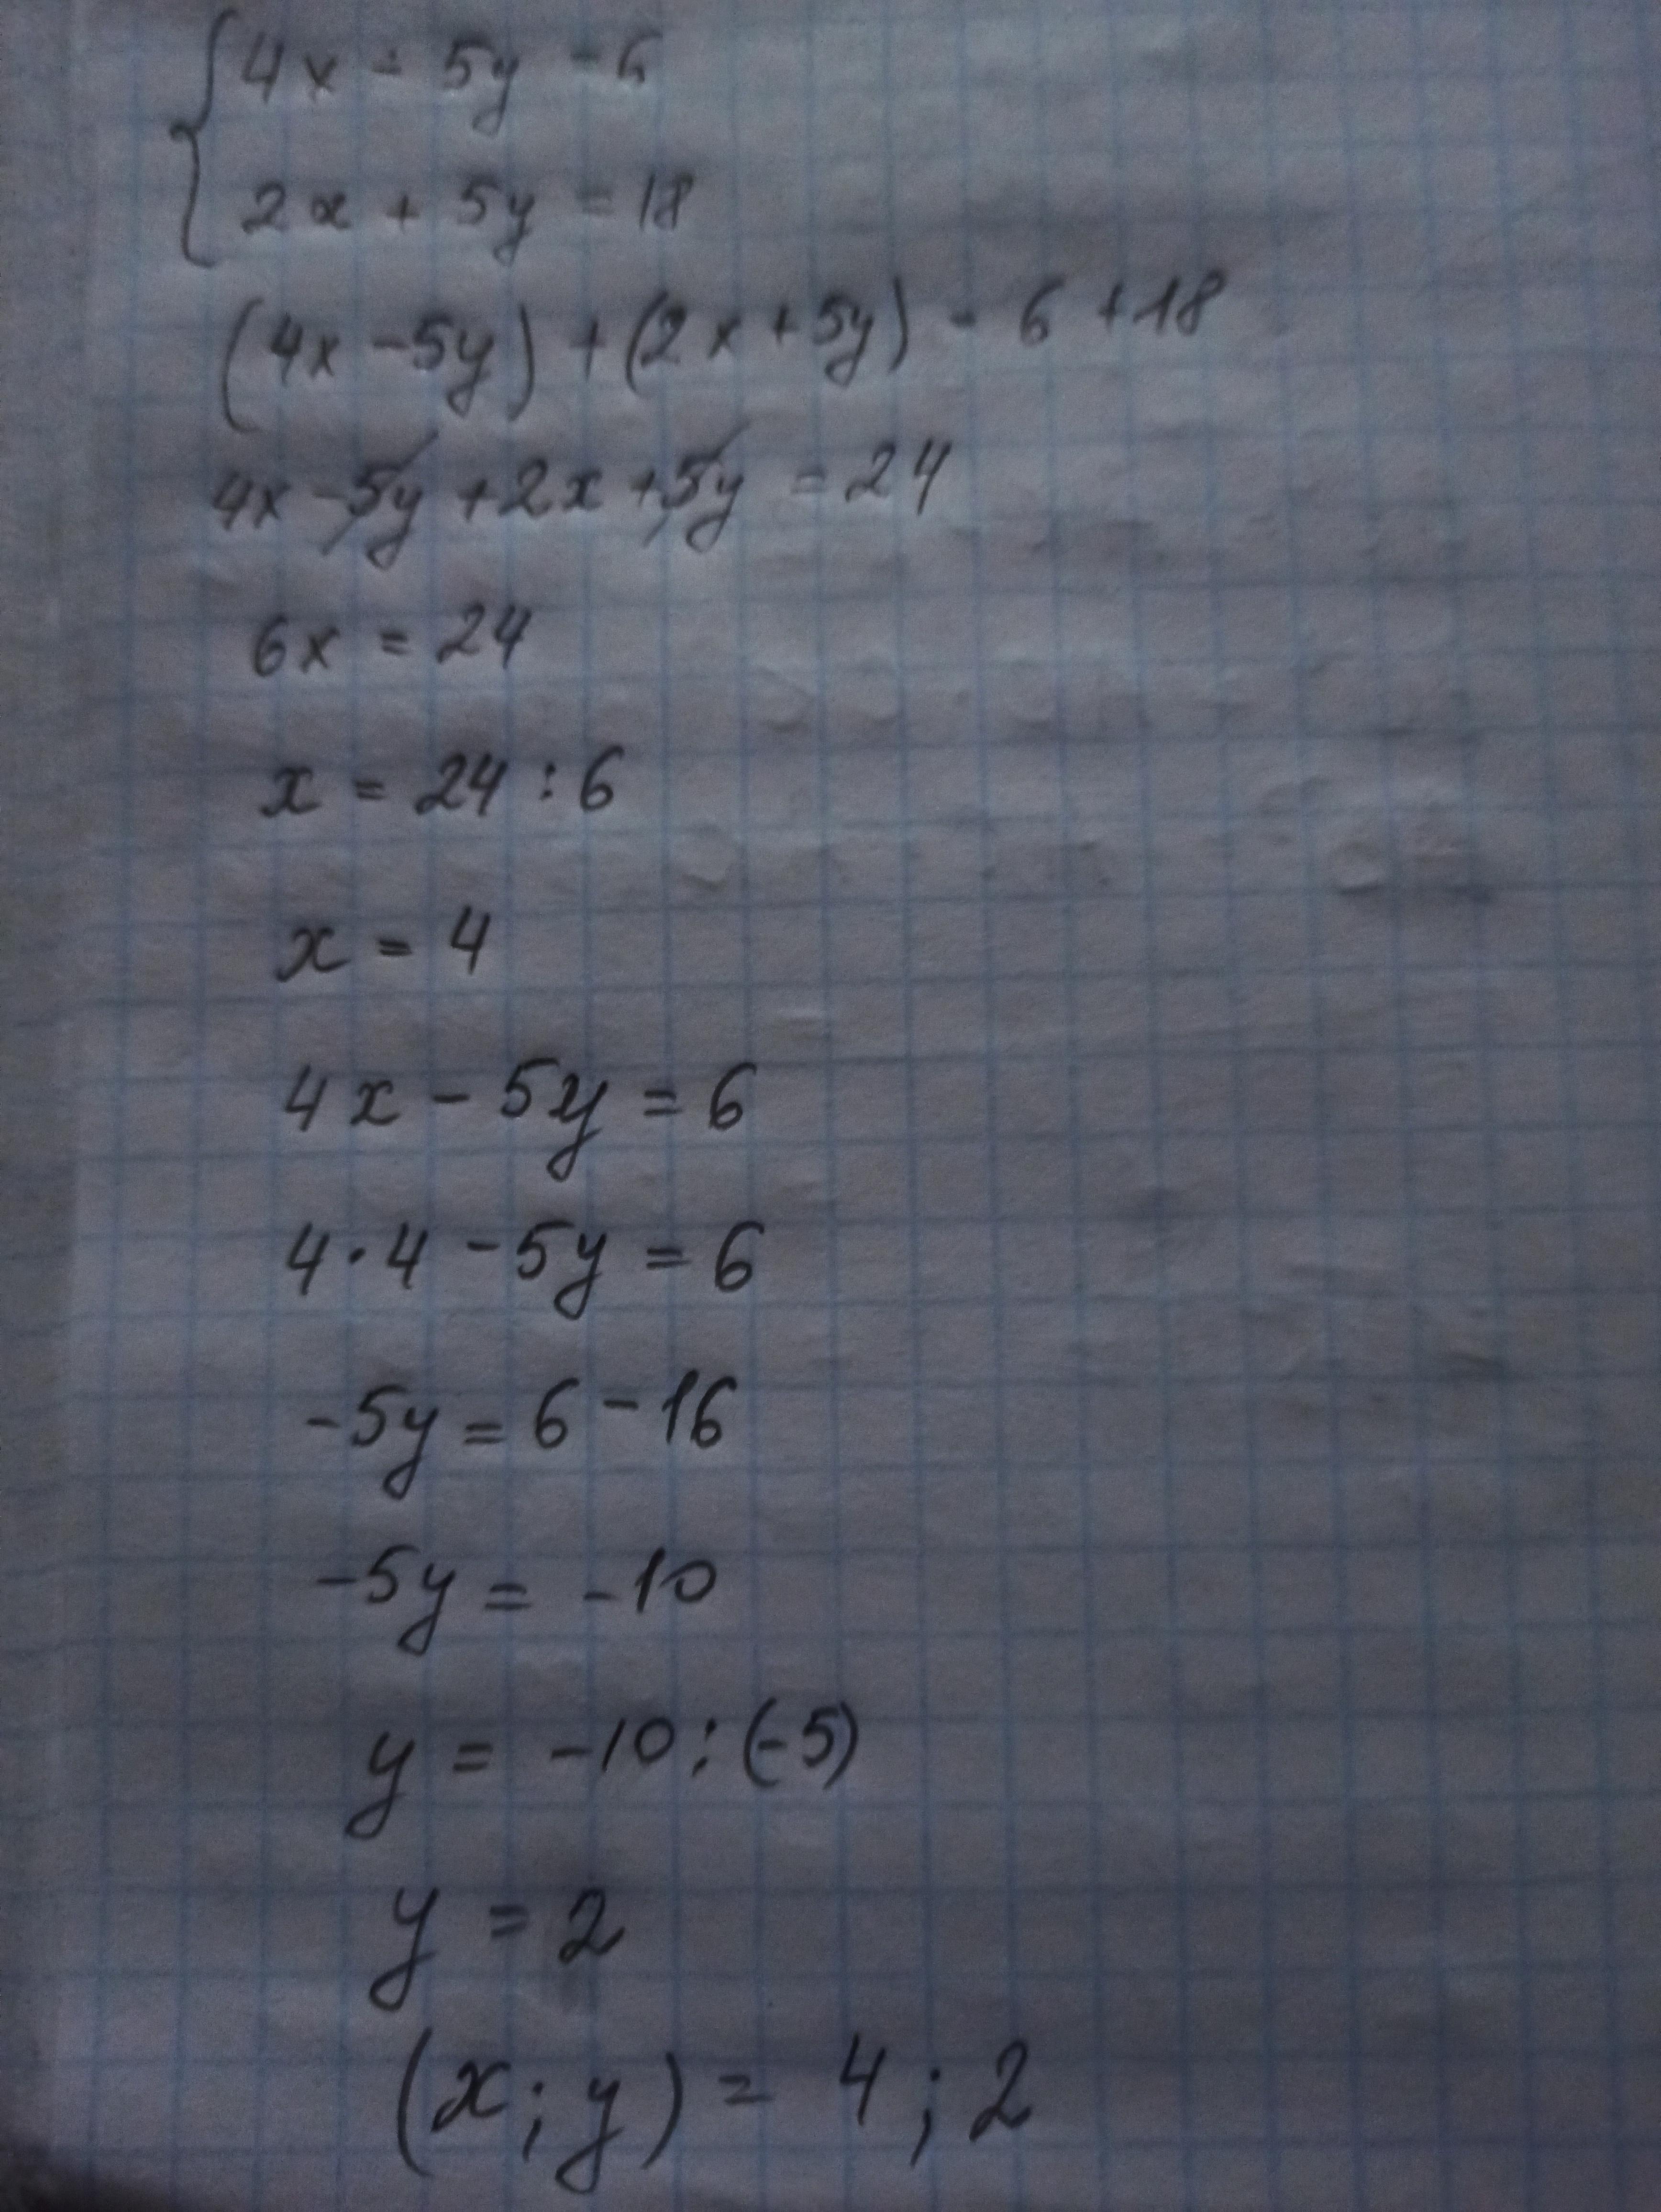 4x - 5y = 6
2x + 5y = 18
(4x - 5y) + (2x + 5y) = 6 + 18
4x - 5y + 2x + 5y = 24
6x = 24
x = 24 : 6
x = 4
4x - 5y = 6
4 · 4 - 5y = 6
-5y = 6 - 16
-5y = -10
y = -10 : (-5)
y = 2
(x; y) = 4; 2